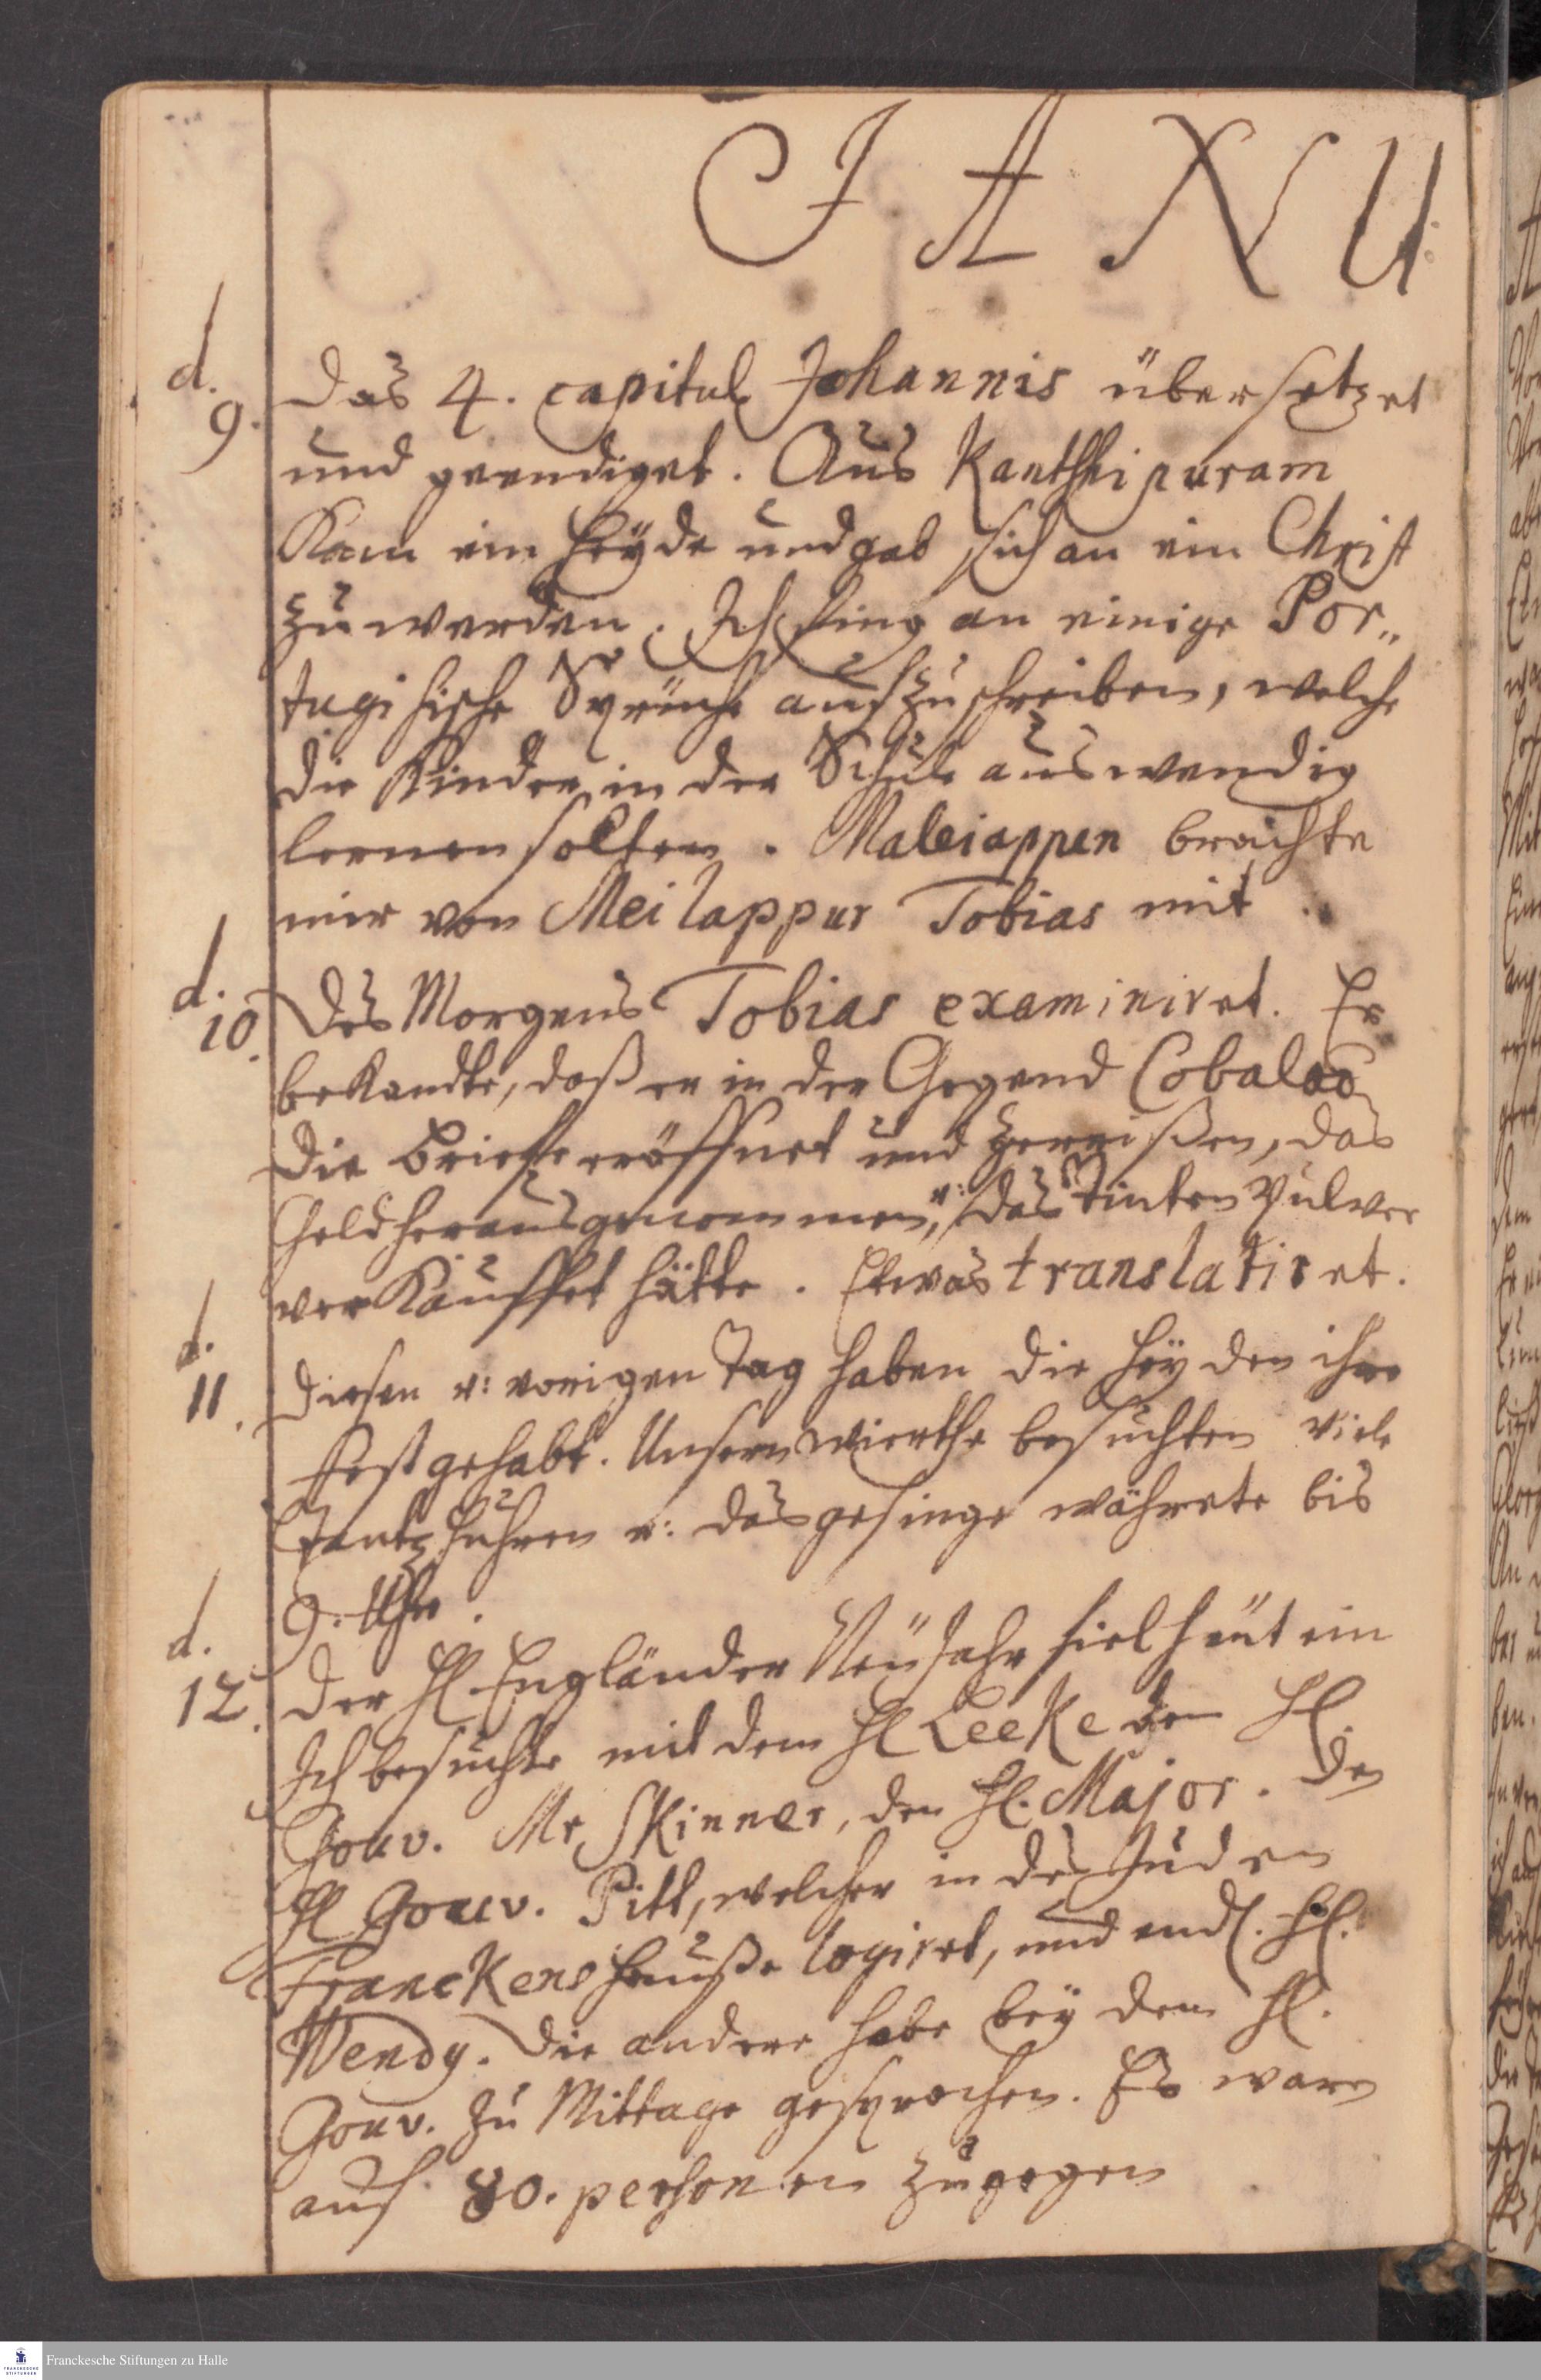 JANU
d.
9.
Das 4. capitul Johannis übersetzet
und geendiget. Aus Kantshipuram
Kam ein Heÿde und gab sich an ein Christ
zu werden. Ich fing an einige Por„
tugisische Sprüche aufzuschreiben, welche
die Kinder in der Schule auswendig
lernen solten. Maleiappen brachte
mir von Meilappur Tobias mit.
d.
10.
Des Morgens Tobias examiniret. Er
bekandte, daß er in der Gegend Cobalao
die Brieffe eröffnet und zerrißen, das
Geld herausgenommen, u: das Tinten Pulver
verkauffet hätte. Etwas translatiret.
d.
11.
Diesen u: vorigen Tag haben die Heÿden ihre
Fest gehabt. Unsern Wierthe besuchten viele
Tantzhuhren u: das gesinge währete bis
9. Uhr.
d.
12.
Der H. Engländer Neü Jahr fiel heüt ein
Ich besuchte mit dem H Leeke den H.
Gouv. Mr Skinner, den H. Major. Den
H Gouv. Pitt, welcher in des Juden
Franckens Hauße logiret, und endl. H.
Wendy. Die andere habe beÿ dem H.
Gouv. zu Mittage gesprochen. Es waren
auf 80. personen zugegen
Franckesche Stiftungen zu Halle